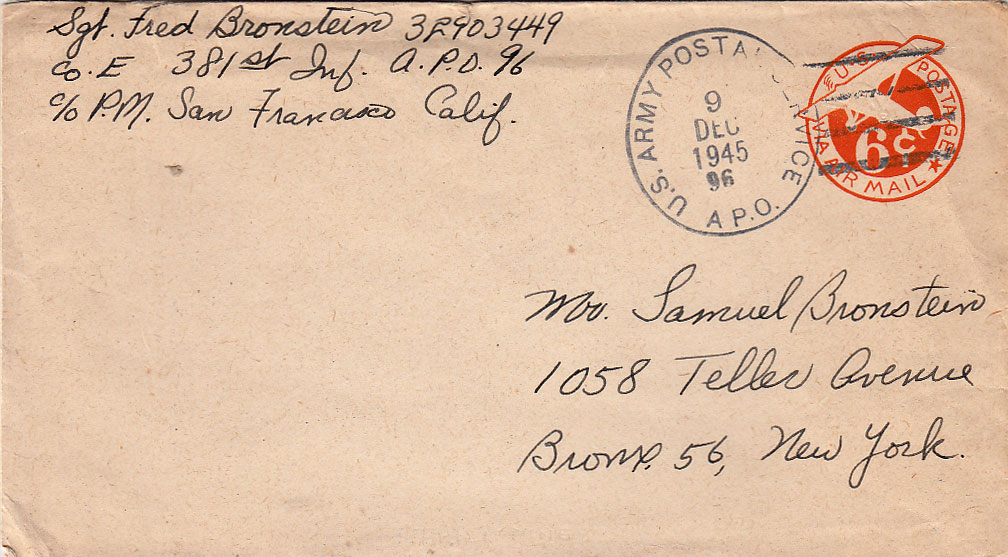 Sgt. Fred Bronstein 32903449
Co. E 381st Inf. A.P.O. 96
c/o P.M. San Francisco Calif.
U.S. ARMY POSTAL SERVICE
9
DEC
1945
96
A.P.O.
U.S. POSTAGE
6¢
VIA AIR MAIL
Mrs. Samuel Bronstein
1058 Teller Avenue
Bronx 56, New York.